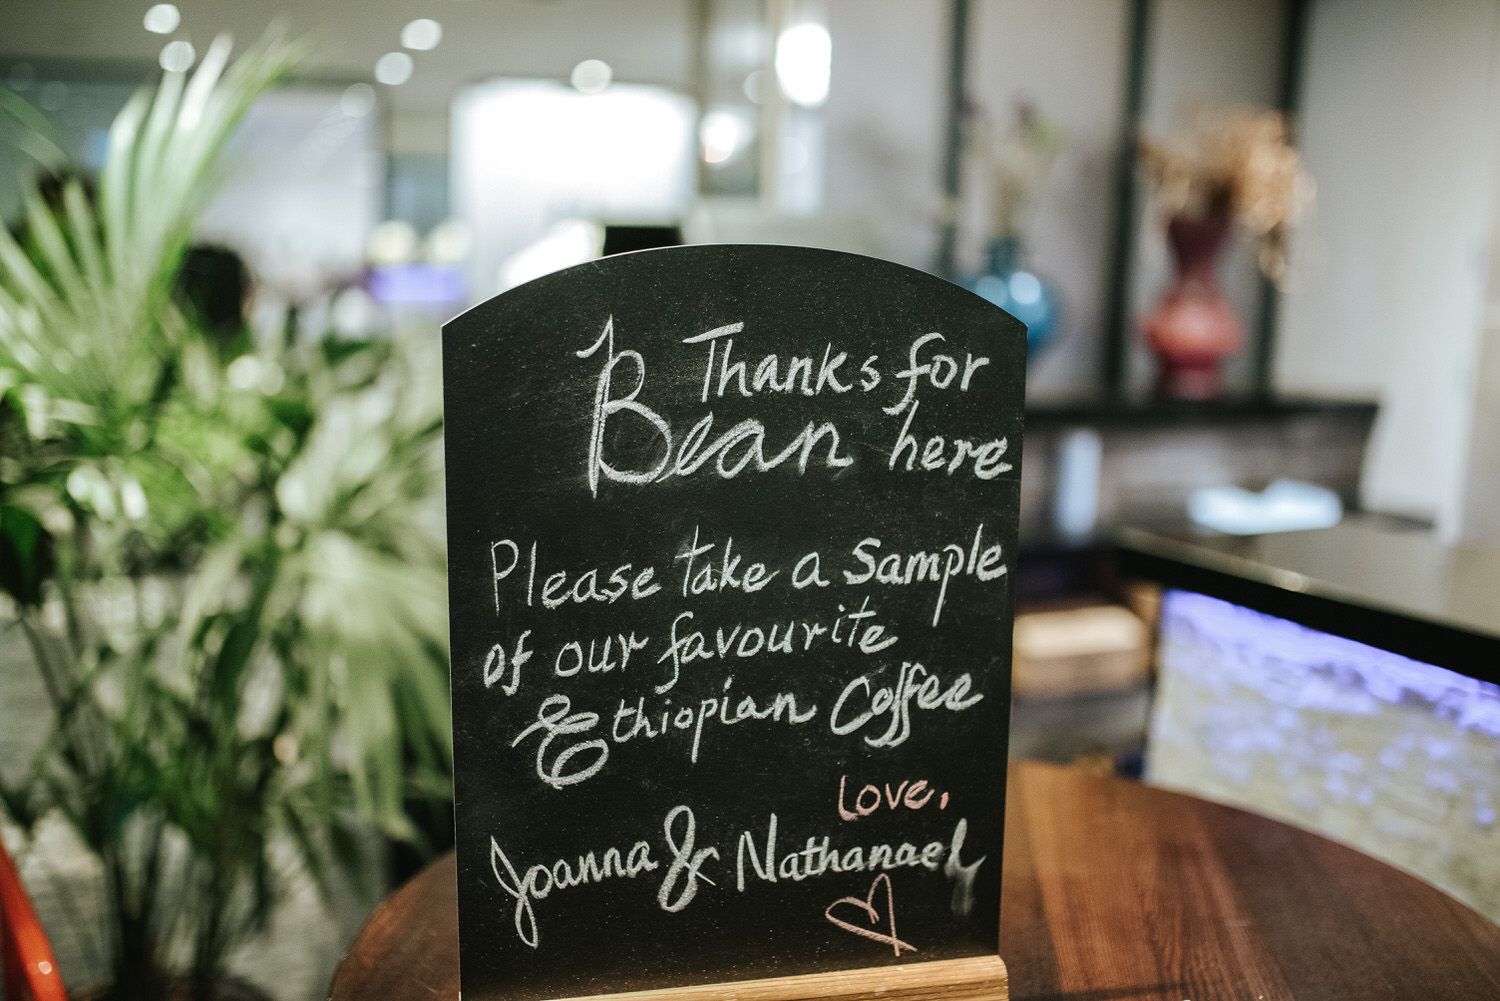 Thanks for
Bean here
Please take a sample
of our favourite
Ethiopian Coffee
Love,
Joanna & Nathanael